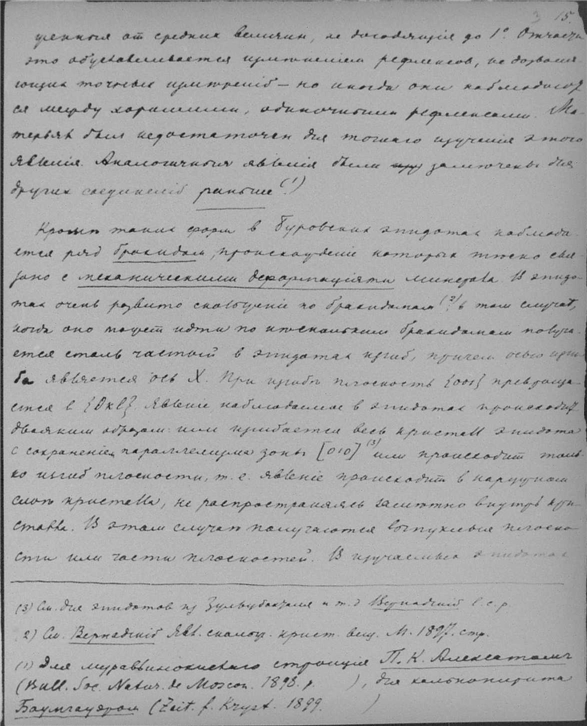 15.
ценныя от средних величин, не доходящія до 1°. Отчасти
это обуславливается измѣненіем рефлексов, не дозволя-
ющих точных измѣреній – но иногда они наблюдают-
ся между хорошими, одиночными рефлексами. Ма-
теріял был недостаточен для точнаго изученія этого
явленія. Аналогичныя явленія были замѣчены для
других соединеній раньше (1)
Кромѣ таких форм в Буровских эпидотах наблюда-
ется ряд бракидом, происхожденіе которых тѣсно свя-
зано с механическими деформаціями минерала. В эпидо-
тах очень развито скольженіе по бракидомам (2) в том случаѣ,
когда оно может идти по нѣскольким бракидомам получа-
ется столь частый в эпидотах изгиб, причем осью изги-
ба является ось X. При изгибѣ плоскость {001} превраща-
ется в {0kl}. Явленіе наблюдаемое в эпидотах происходит
двояким образом: или изгибается весь кристалл эпидота
с сохраненіем параллелизма зоны [010] (3) или происходит толь-
ко изгиб плоскости, т. е. явленіе происходит в наружном
слоѣ кристалла, не распространяясь замѣтно внутрь кри-
сталла. В этом случаѣ получаются выпуклыя плоско-
сти или части плоскостей. В изучаемых эпидотах
(3) См. для эпидотов из Зульцбахталя и т. д. Вернадскій l. c. p.
2) См. Вернадскій Явл. скольж. крист. вещ. М. 1897. стр.
(1) Для стронція П. К. Алексатом
(Bull. Soc. Natur. de Moscou. 1898. p. ), для халькопирита
Баумгауэром (Zeit. f. Kryst. 1899. )